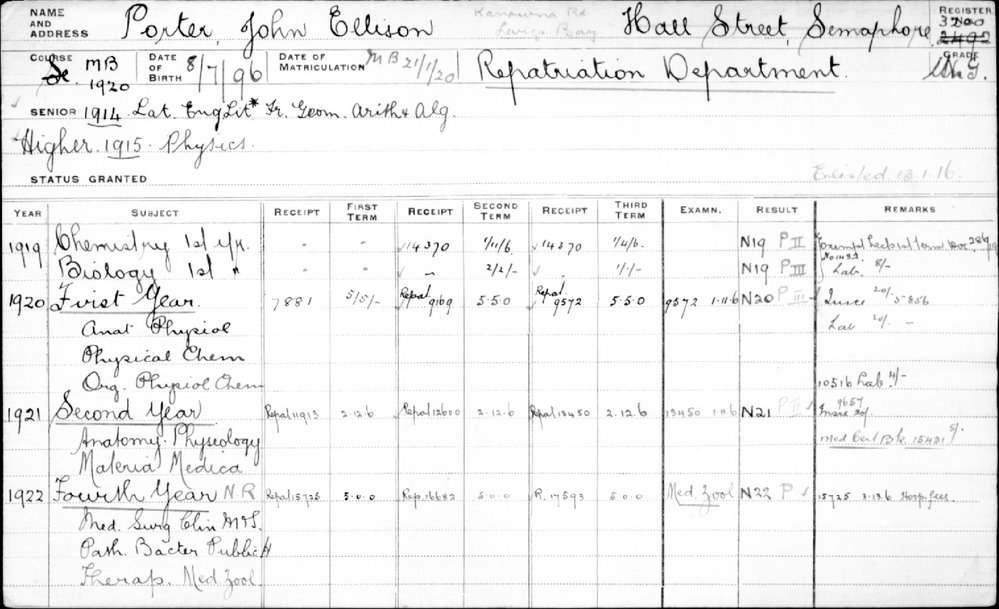 NAME AND ADDRESS Porter, John Ellison Largs Bay Hall Street, Semaphore REGISTER No. 3200 2492
COURSE Sc. MB 1920 DATE OF BIRTH 8/7/96 DATE OF MATRICULATION MB 21/1/20 Repatriation Department. GRADE
SENIOR 1914 Lat. Eng Lit* Fr. Geom. Arith & Alg.
Higher 1915. Physics.
STATUS GRANTED Enlisted 13.1.16.
YEAR SUBJECT RECEIPT FIRST TERM RECEIPT SECOND TERM RECEIPT THIRD TERM EXAMN. RESULT REMARKS
1919 Chemistry 1st yr. - - 14370 1/11/6 14370 1/4/6. N19 P II
Biology 1st " - - - 2/2/- - 1/1/- N19 P III Lab. 8/-
1920 First Year. 7881 5/5/- Repat. 9169 5.5.0 Repat. 9572 5.5.0 9572 1.11.6 N20 P III 20/- 5856
Anat Physiol Lab 20/- -
Physical Chem
Org. Physiol Chem 10516 Lab 4/-
1921 Second Year Repat 11913 2.12.6 Repat 12600 2.12.6 Repat 13450 2.12.6 13450 1.11.6 N21 P II 9657
Anatomy. Physeology Med Cert Bk. 15421 5/-
Materia Medica
1922 Fourth Year N.R Repat 15725 5.0.0 Rep. 16682 5.0.0 R. 17593 5.0.0 Med Zool N22 P 15725 3.13.6 Hosp. fees.
Med. Surg Clin M&S.
Path. Bacter Public H
Therap. Med Zool